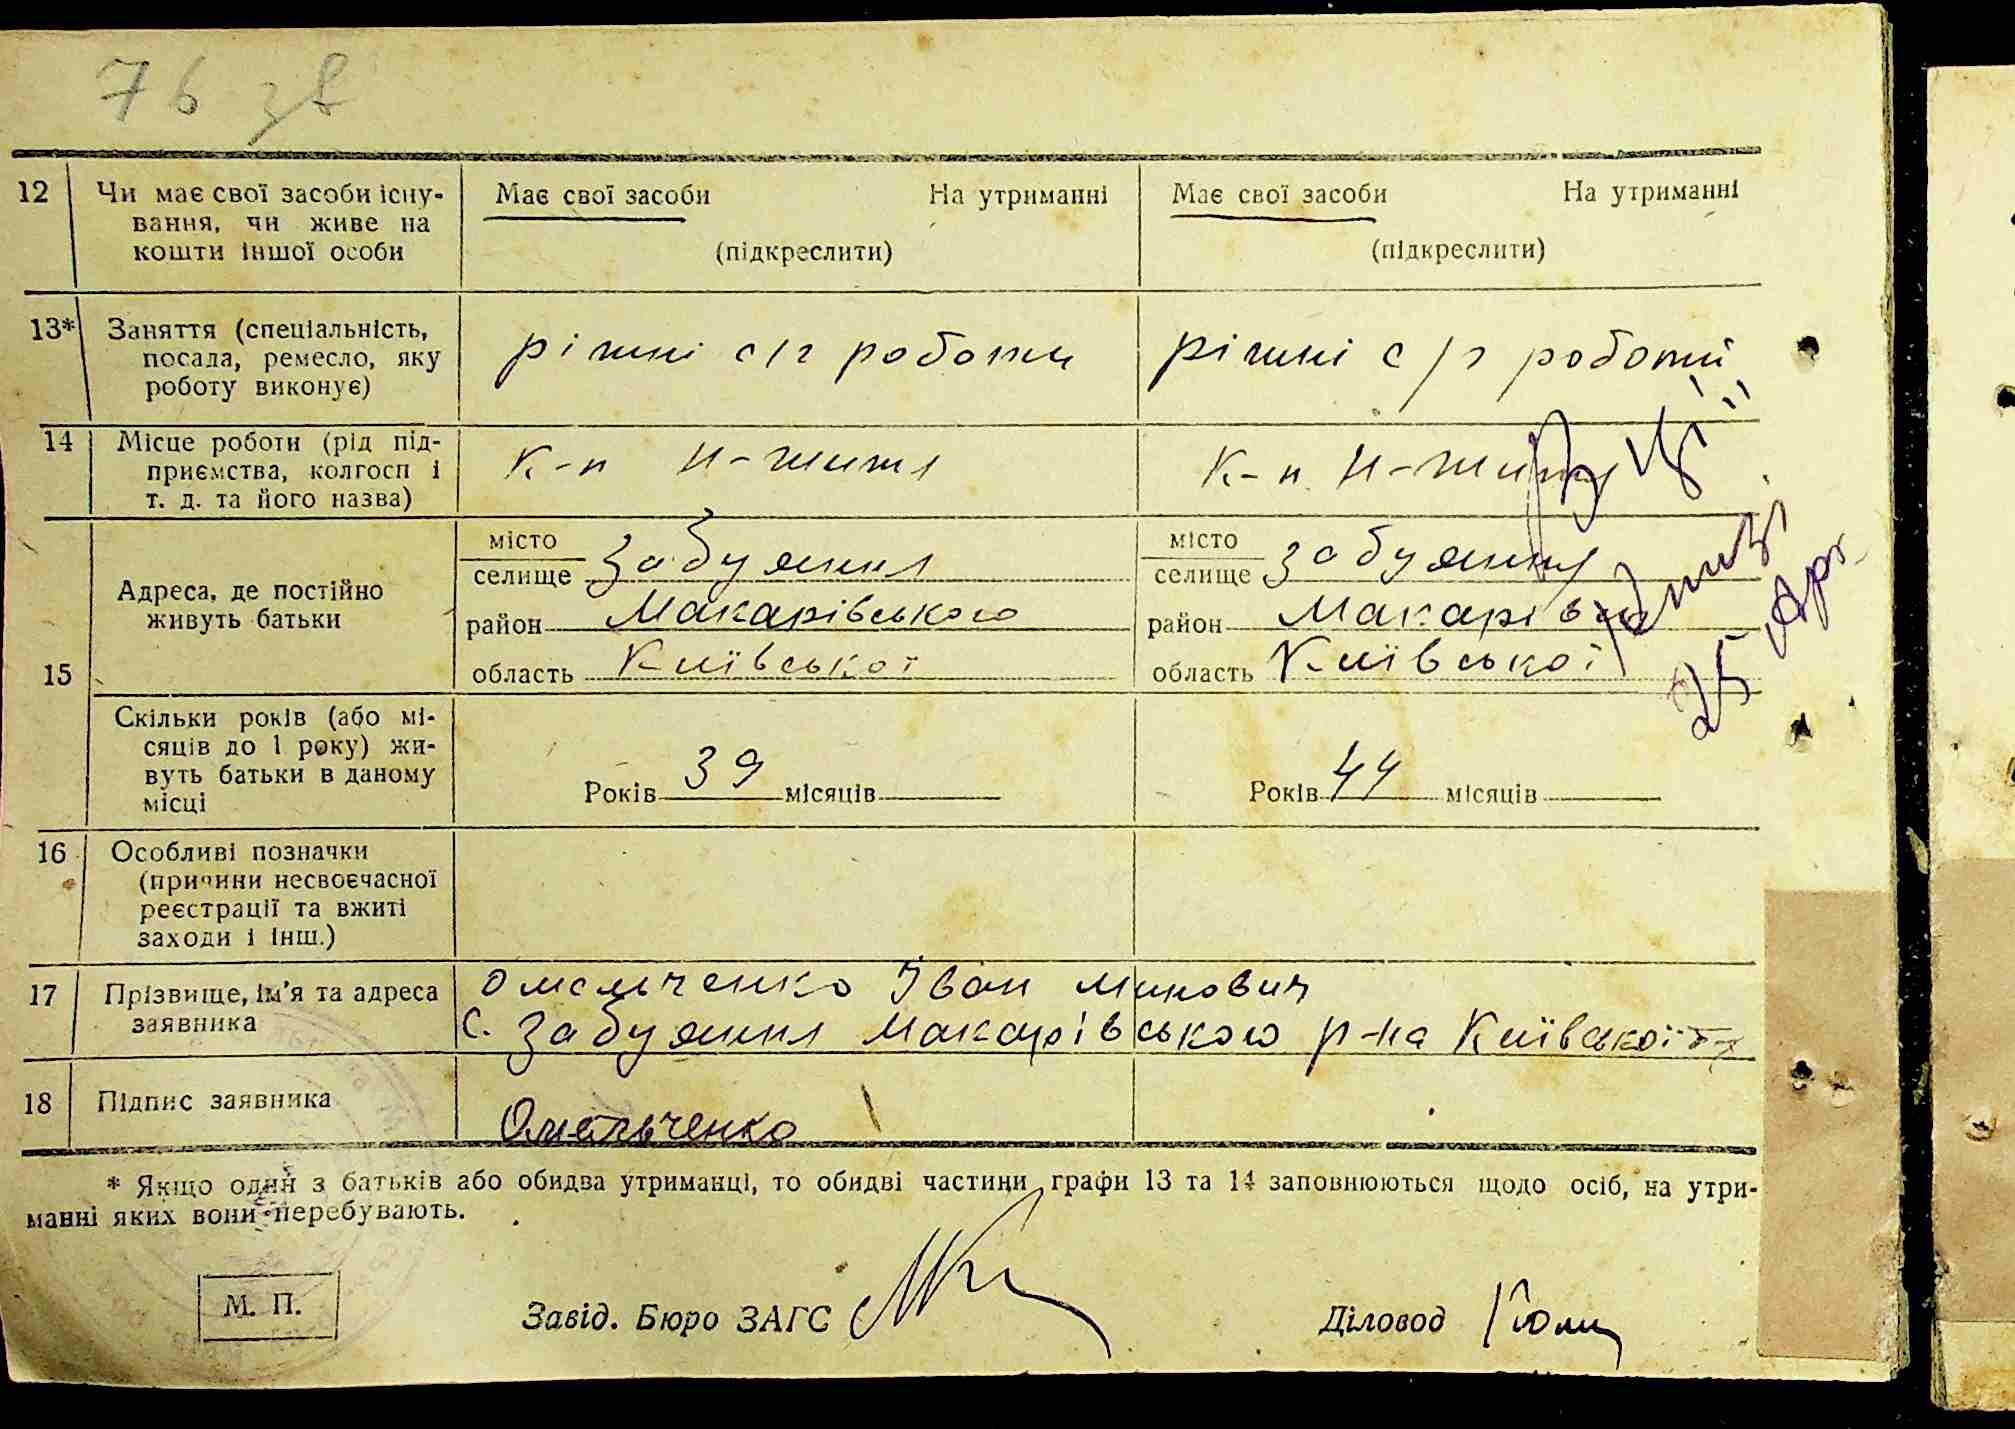 76 зв
12 Чи має свої засоби існу- Має свої засоби На утриманні Має свої засоби На утриманні
вання, чи живе на
кошти іншої особи (підкреслити) (підкреслити)
13* Заняття (спеціальність,
посада, ремесло, яку різні с/г роботи різні с/г роботи
роботу виконує)
14 Місце роботи (рід під-
приємства, колгосп і к-п Н-життя К-п Н-життя
т. д. та його назва)
15 Адреса, де постійно
живуть батьки
місто
селище Забуяння
район Макарівського
область Київської
місто
селище Забуяння
район Макарівс
область Київської
25
Скільки років (або мі-
сяців до 1 року) жи-
вуть батьки в даному
місці
Років 39 місяців
Років 44 місяців
16 Особливі позначки
(причини несвоєчасної
реєстрації та вжиті
заходи і інш.)
17 Прізвище, ім'я та адреса Омельченко Іван Минович
заявника с. Забуяння Макарівського р-на Київської
18 Підпис заявника Омельченко
* Якщо один з батьків або обидва утриманці, то обидві частини графи 13 та 14 заповнюються щодо осіб, на утри-
манні яких вони перебувають.
М. П. Завід. Бюро ЗАГС Діловод